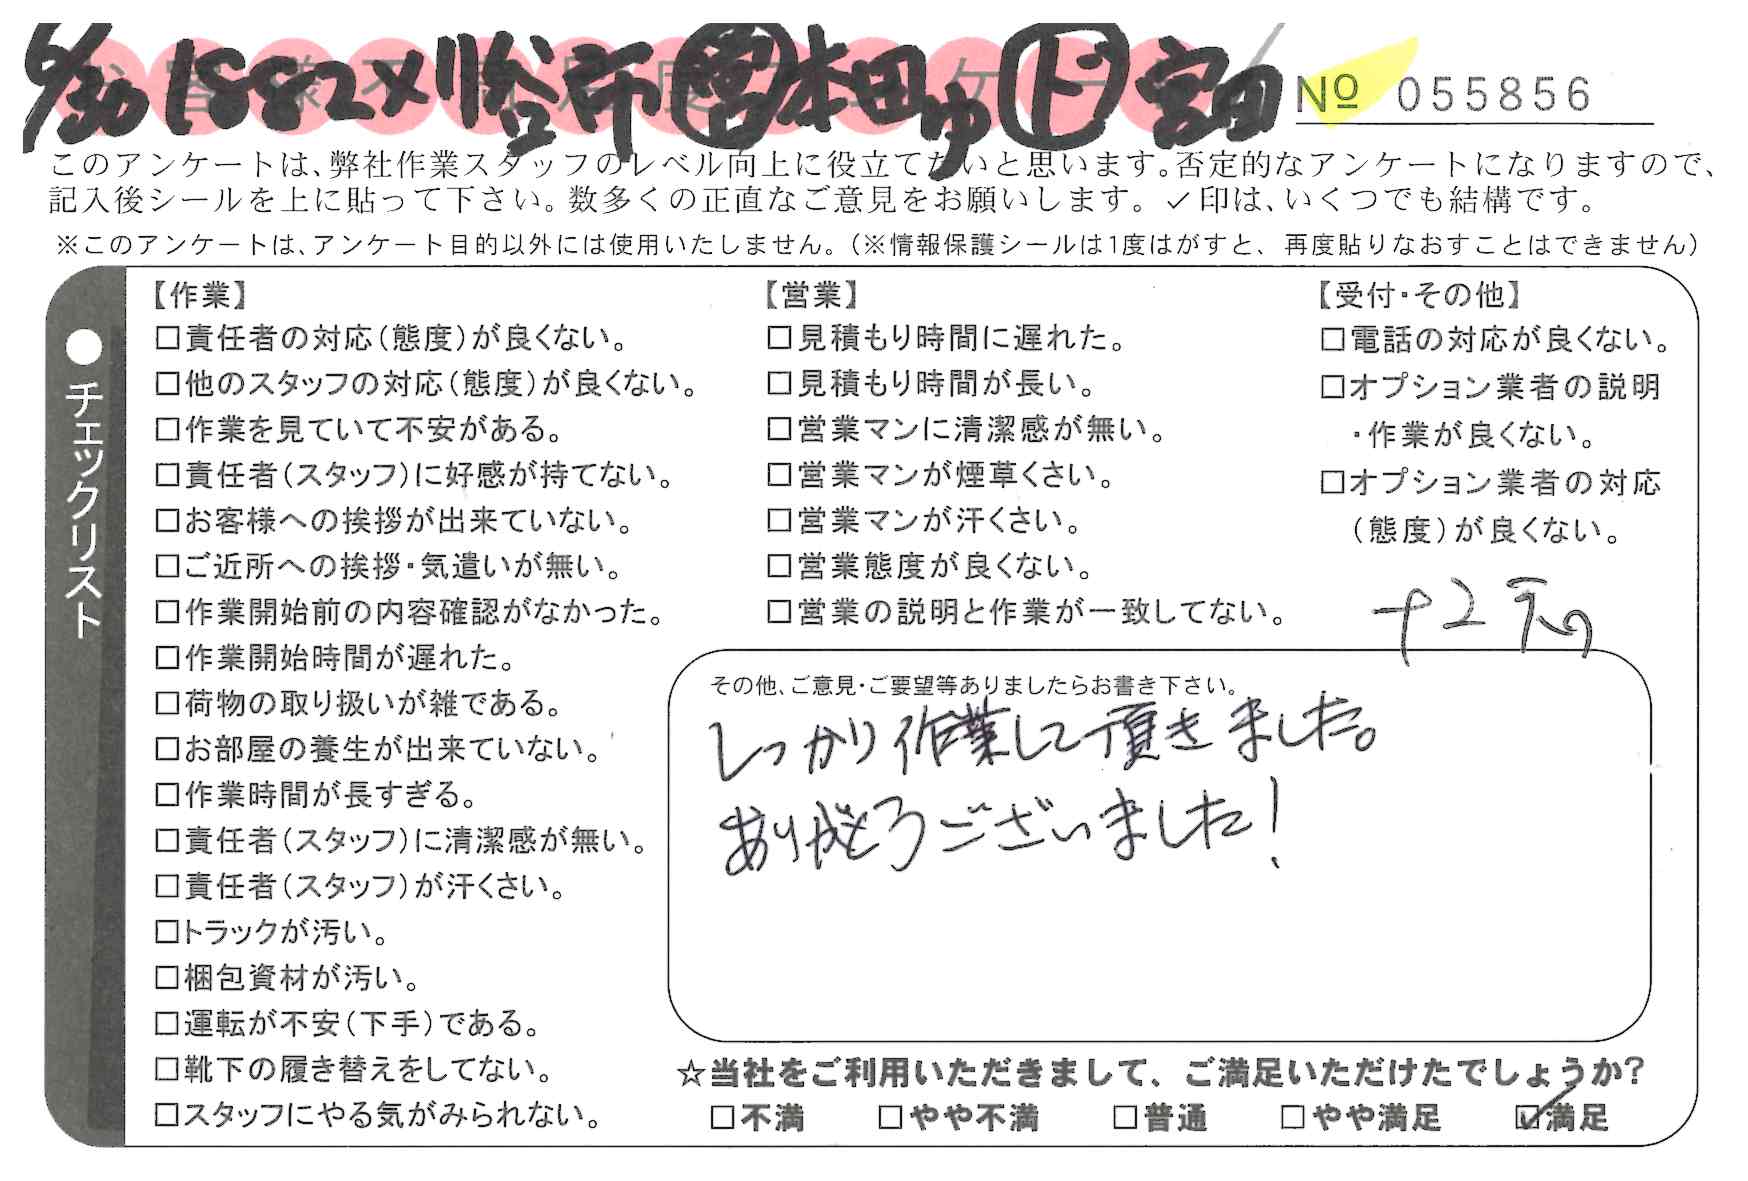 6/30 1882 × 刈谷市 営 本田ゆ ド 宮田
№ 055856
このアンケートは、弊社作業スタッフのレベル向上に役立てたいと思います。否定的なアンケートになりますので、
記入後シールを上に貼って下さい。数多くの正直なご意見をお願いします。✓印は、いくつでも結構です。
※このアンケートは、アンケート目的以外には使用いたしません。（※情報保護シールは1度はがすと、再度貼りなおすことはできません）
●チェックリスト
【作業】
□責任者の対応（態度）が良くない。
□他のスタッフの対応（態度）が良くない。
□作業を見ていて不安がある。
□責任者（スタッフ）に好感が持てない。
□お客様への挨拶が出来ていない。
□ご近所への挨拶・気遣いが無い。
□作業開始前の内容確認がなかった。
□作業開始時間が遅れた。
□荷物の取り扱いが雑である。
□お部屋の養生が出来ていない。
□作業時間が長すぎる。
□責任者（スタッフ）に清潔感が無い。
□責任者（スタッフ）が汗くさい。
□トラックが汚い。
□梱包資材が汚い。
□運転が不安（下手）である。
□靴下の履き替えをしてない。
□スタッフにやる気がみられない。
【営業】
□見積もり時間に遅れた。
□見積もり時間が長い。
□営業マンに清潔感が無い。
□営業マンが煙草くさい。
□営業マンが汗くさい。
□営業態度が良くない。
□営業の説明と作業が一致してない。
【受付・その他】
□電話の対応が良くない。
□オプション業者の説明
・作業が良くない。
□オプション業者の対応
（態度）が良くない。
その他、ご意見・ご要望等ありましたらお書き下さい。
しっかり作業して頂きました。
ありがとうございました！
☆当社をご利用いただきまして、ご満足いただけたでしょうか？
□不満 □やや不満 □普通 □やや満足 ☑満足